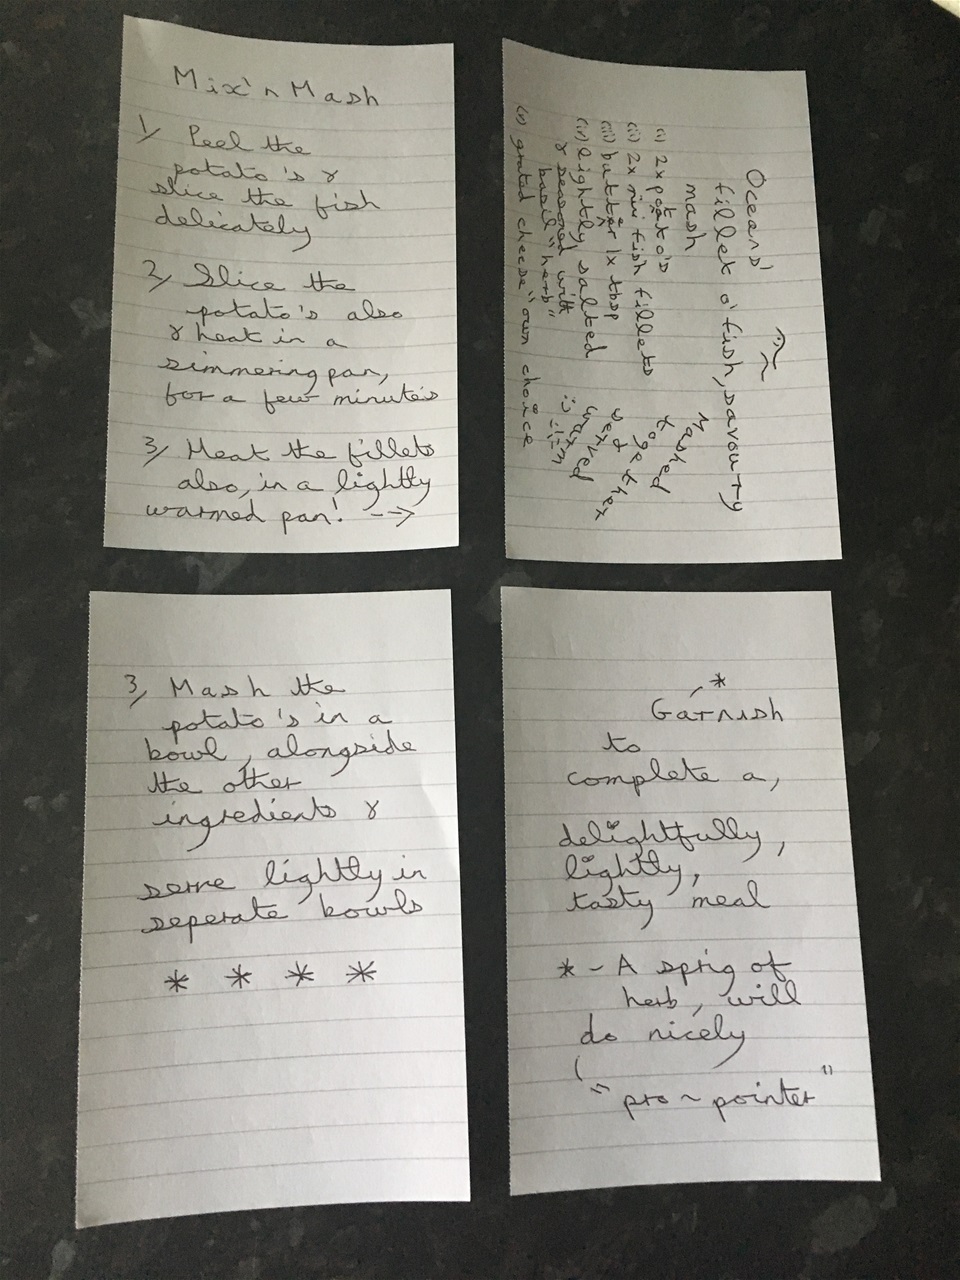 Mix'n Mash
1/ Peel the
potato's &
slice the fish
delicately
2/ Slice the
potato's also
& heat in a
simmering pan,
for a few minutes
3/ Heat the fillets
also, in a lightly
warmed pan! -->
Oceans'
fillet o' fish, savoury
mash
(i) 2x potato's
(ii) 2x mix fish fillets
(iii) butter 1x tbsp
(iv) lightly salted
& seasoned with
basil "herb"
(v) grated cheese "own choice
mashed
together
3/ Mash the
potato's in a
bowl, alongside
the other
ingredients &
serve lightly in
seperate bowls
* * * *
*
Garnish
to
complete a,
delightfully,
lightly,
tasty meal
* - A sprig of
herb, will
do nicely
"pro ~ pointer"